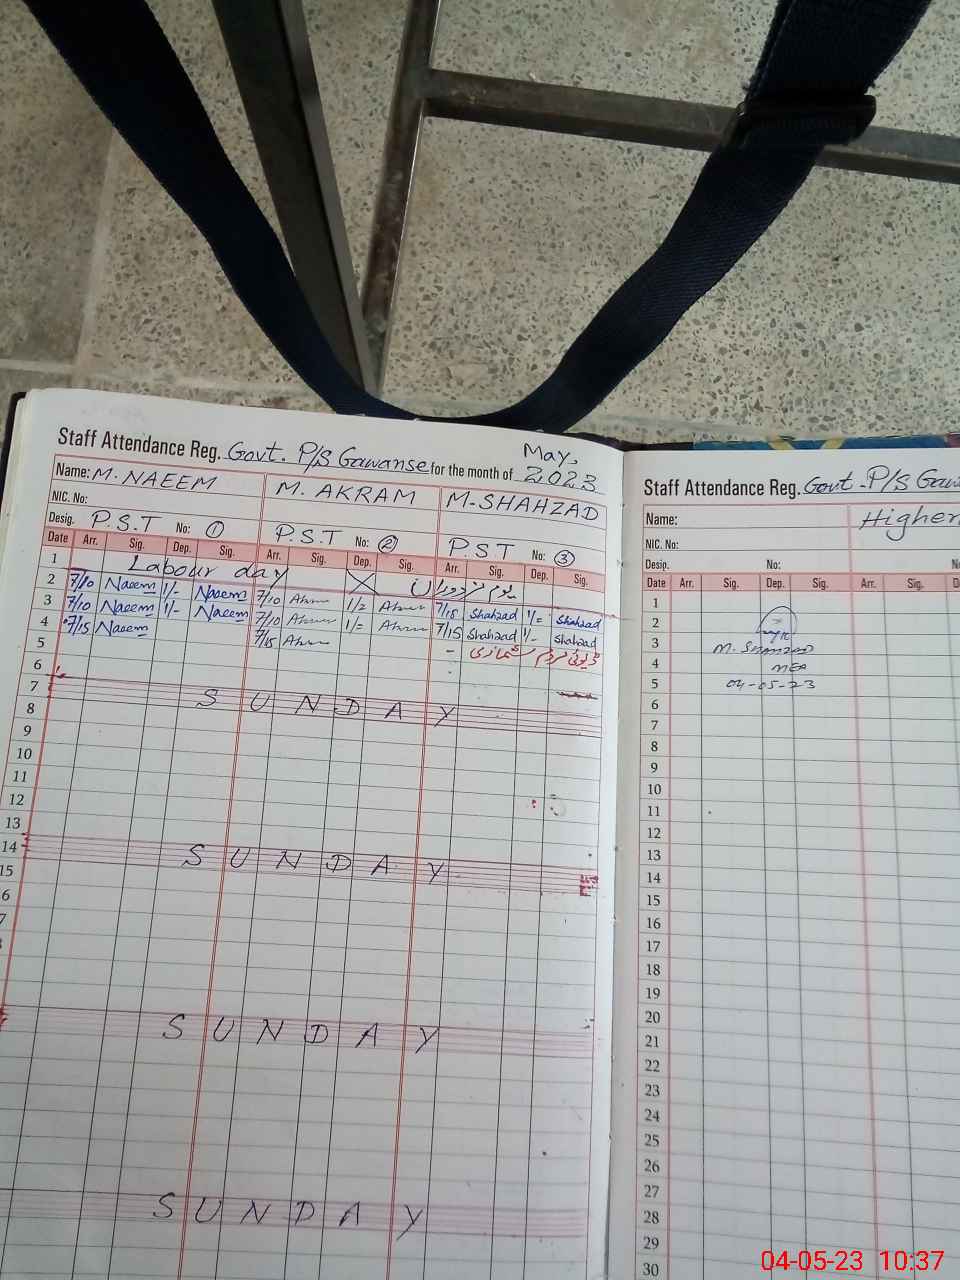 Staff Attendance Reg. Govt. P/S Gawanse for the month of May, 2023
Name: M. NAEEM M. AKRAM M. SHAHZAD
NIC. No:
Desig. P.S.T No: 1 P.S.T No: 2 PST No: 3
Date Arr. Sig. Dep. Sig. Arr. Sig. Dep. Sig. Arr. Sig. Dep. Sig.
1 Labour day یوم مزدوراں
2 7/10 Naeem 1/- Naeem 7/10 Akram 1/2 Akram 7/15 Shahzad 1/= Shahzad
3 7/10 Naeem 1/- Naeem 7/10 Akram 1/= Akram 7/15 Shahzad 1/- Shahzad
4 7/15 Naeem 7/15 Akram مردم شماری
5
6
7 SUNDAY
8
9
10
11
12
13
14 SUNDAY
15
6
7
SUNDAY
SUNDAY
Staff Attendance Reg. Govt. P/S Gaw
Name: Higher
NIC. No:
Desip. No:
Date Arr. Sig. Dep. Sig. Arr. Sig. De
1
2
3 M. Shahzad
4 MEA
5 04-05-23
6
7
8
9
10
11
12
13
14
15
16
17
18
19
20
21
22
23
24
25
26
27
28
29
30
04-05-23 10:37